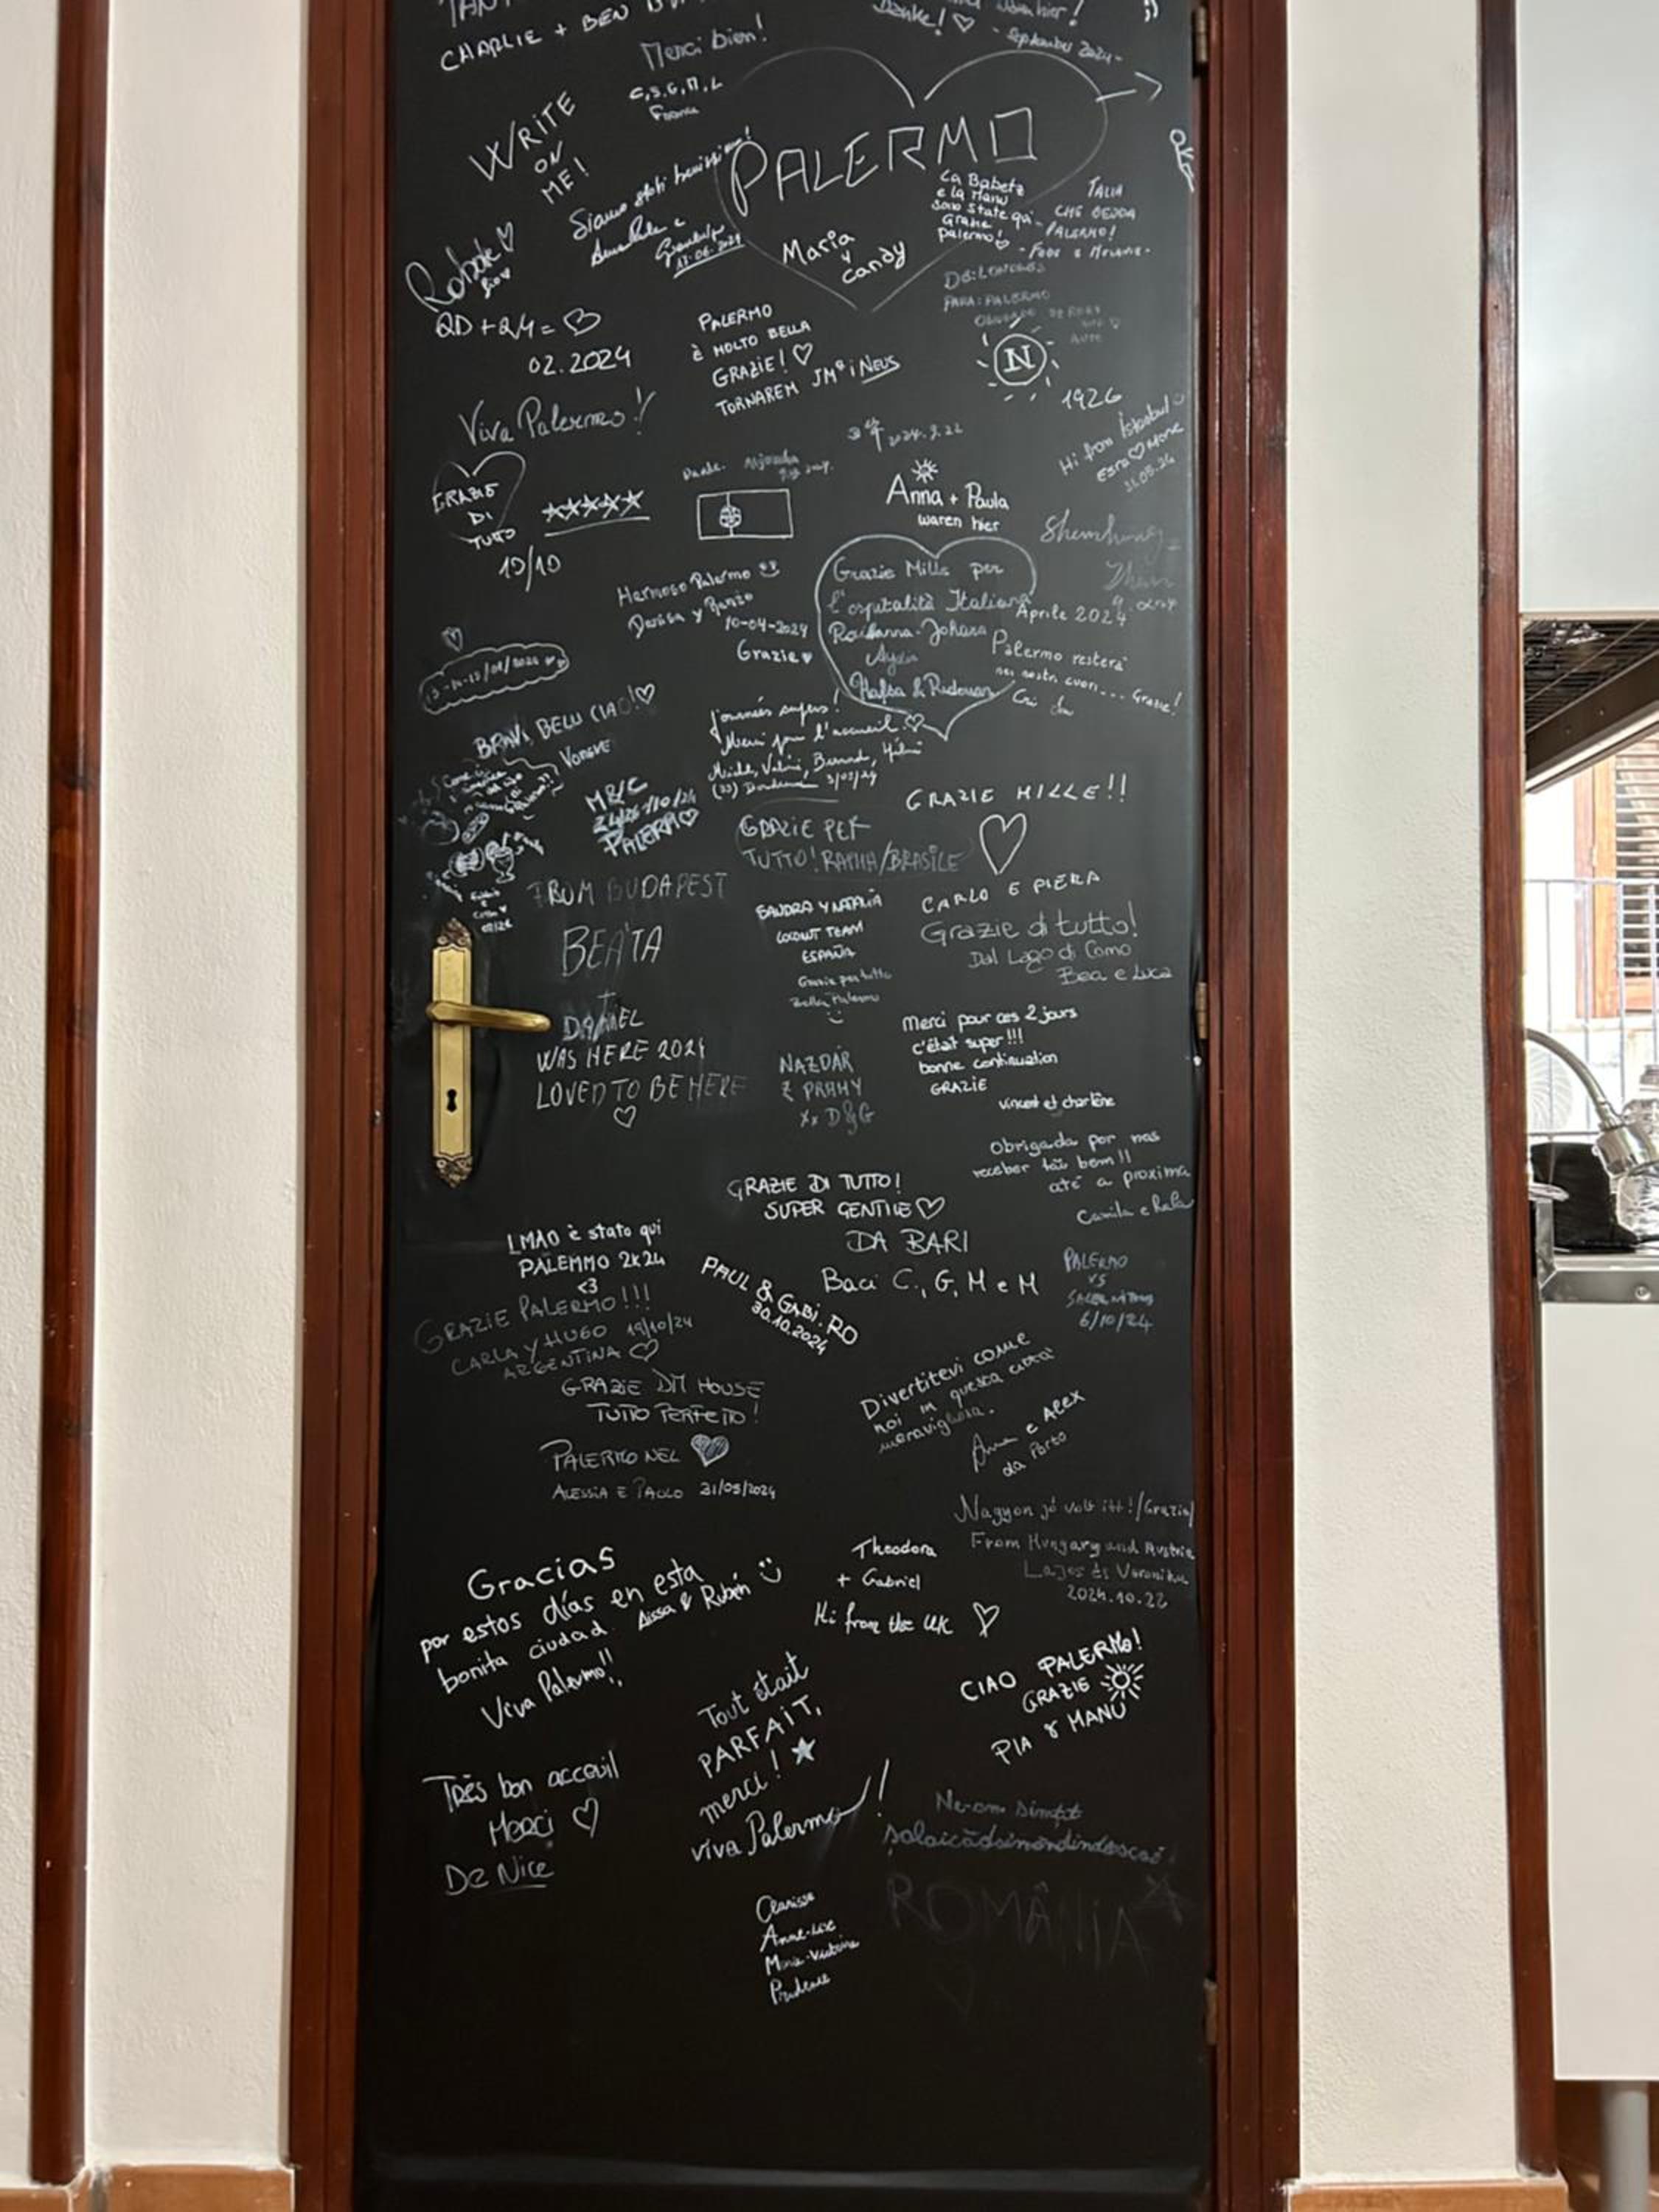 CHARLIE + BEN
Danke! ♡
- September 2024 -
Merci bien!
C,S,G,M,L
WRITE
ON
ME!
PALERMO
Maria
y
Candy
La Babeta
e la Manu
sono state qui
Grazie
palermo!
PALERMO!
Siamo stati benissimo!
17.06.2024
QD + QM = ♡
02.2024
DA: LONDRES
PARA: PALERMO
N
1926
PALERMO
È MOLTO BELLA
GRAZIE! ♡
TORNAREM JMª i NEUS
Viva Palermo!
2024.3.22
Hi from İstanbul
31.05.24
GRAZIE
DI
TUTTO
10/10
Anna + Paula
waren hier
Hermoso Palermo
10-04-2024
Grazie ♥
Grazie Mille per
l'ospitalità Italiana
Hafsa & Redouan
Aprile 2024
Palermo resterà
nei nostri cuori... Grazie!
BRAVI, BELLI CIAO! ♡
Journées supers!
Merci pour l'accueil. ♡
M&C
PALERMO
GRAZIE MILLE!!
GRAZIE PER
TUTTO! RAMA/BRASILE
FROM BUDAPEST
BEATA
SANDRA Y NATALIA
LOCOUT TEAM
ESPAÑA
Grazie per tutto
Bella Palermo
CARLO E PIERA
Grazie di tutto!
Dal Lago di Como
Bea e Luca
DANIEL
WAS HERE 2024
LOVED TO BE HERE
♡
NAZDAR
Z PRAHY
xx D&G
Merci pour ces 2 jours
c'était super!!!
bonne continuation
GRAZIE
Vincent et charlène
Obrigada por nos
receber tão bem!!
até a proxima
Camila e Rafa
GRAZIE DI TUTTO!
SUPER GENTILE ♡
DA BARI
Baci C., G, M e M
LMAO è stato qui
PALEMMO 2K24
<3
GRAZIE PALERMO!!!
CARLA Y HUGO 19/10/24
ARGENTINA ♡
PAUL & GABI. RO
30.10.2024
PALERMO
VS
6/10/24
GRAZIE DM HOUSE
TUTTO PERFETTO!
Divertitevi come
noi in questa città
meravigliosa.
Anna e Alex
da Porto
PALERMO NEL ♥
ALESSIA E PAOLO 31/05/2024
Nagyon jó volt itt!/Grazie/
From Hungary and Austria
Lajos és Veronika
2024.10.22
Theodora
+ Gabriel
Hi from the UK ♡
Gracias
por estos días en esta
bonita ciudad. Aissa & Rubén
Viva Palermo!!
CIAO PALERMO!
GRAZIE
PIA & MANU
Tout était
PARFAIT,
merci! ★
viva Palermo!!
Très bon acceuil
Merci ♡
De Nice
Ne-am simțit
ROMÂNIA
Clarisse
Anne-Lise
Marie-Victoire
Prudence